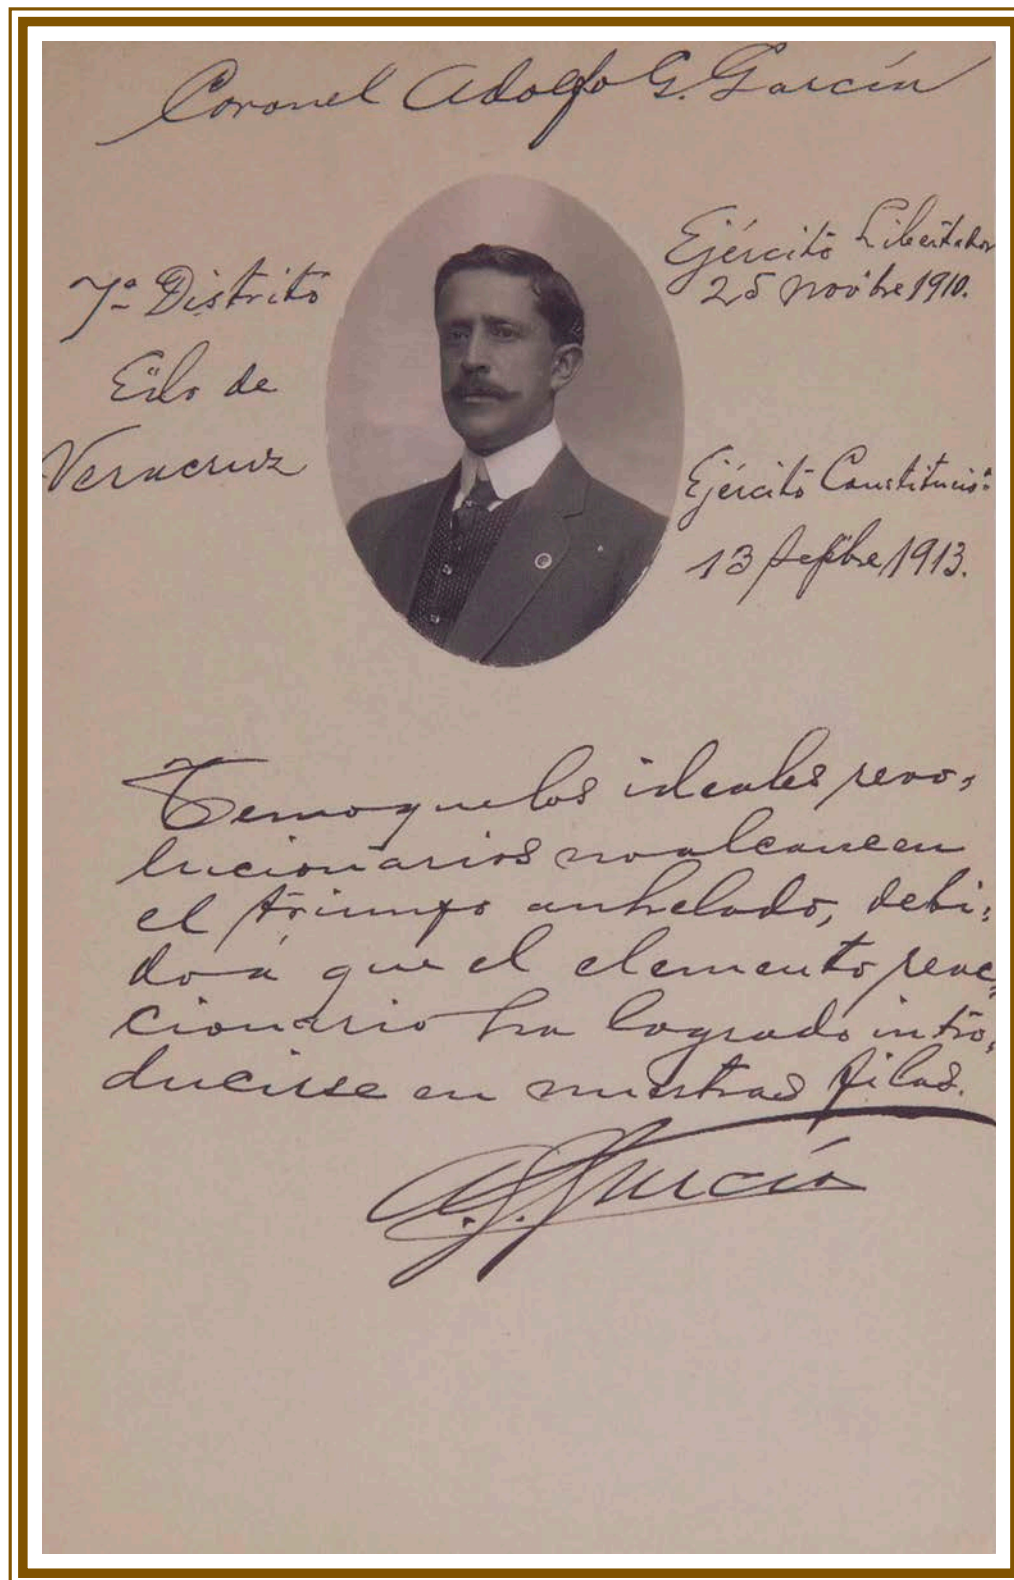 Coronel Adolfo G. García
7º Distrito
Edo de
Veracruz
Ejército Libertador
25 Novbre 1910.
Ejército Constitucio:
13 Sepbre 1913.
Temo que los ideales revo-
lucionarios no alcancen
el triunfo anhelado, debi-
do á que el elemento reac-
cionario ha logrado intro-
ducirse en nuestras filas.
A. G. García